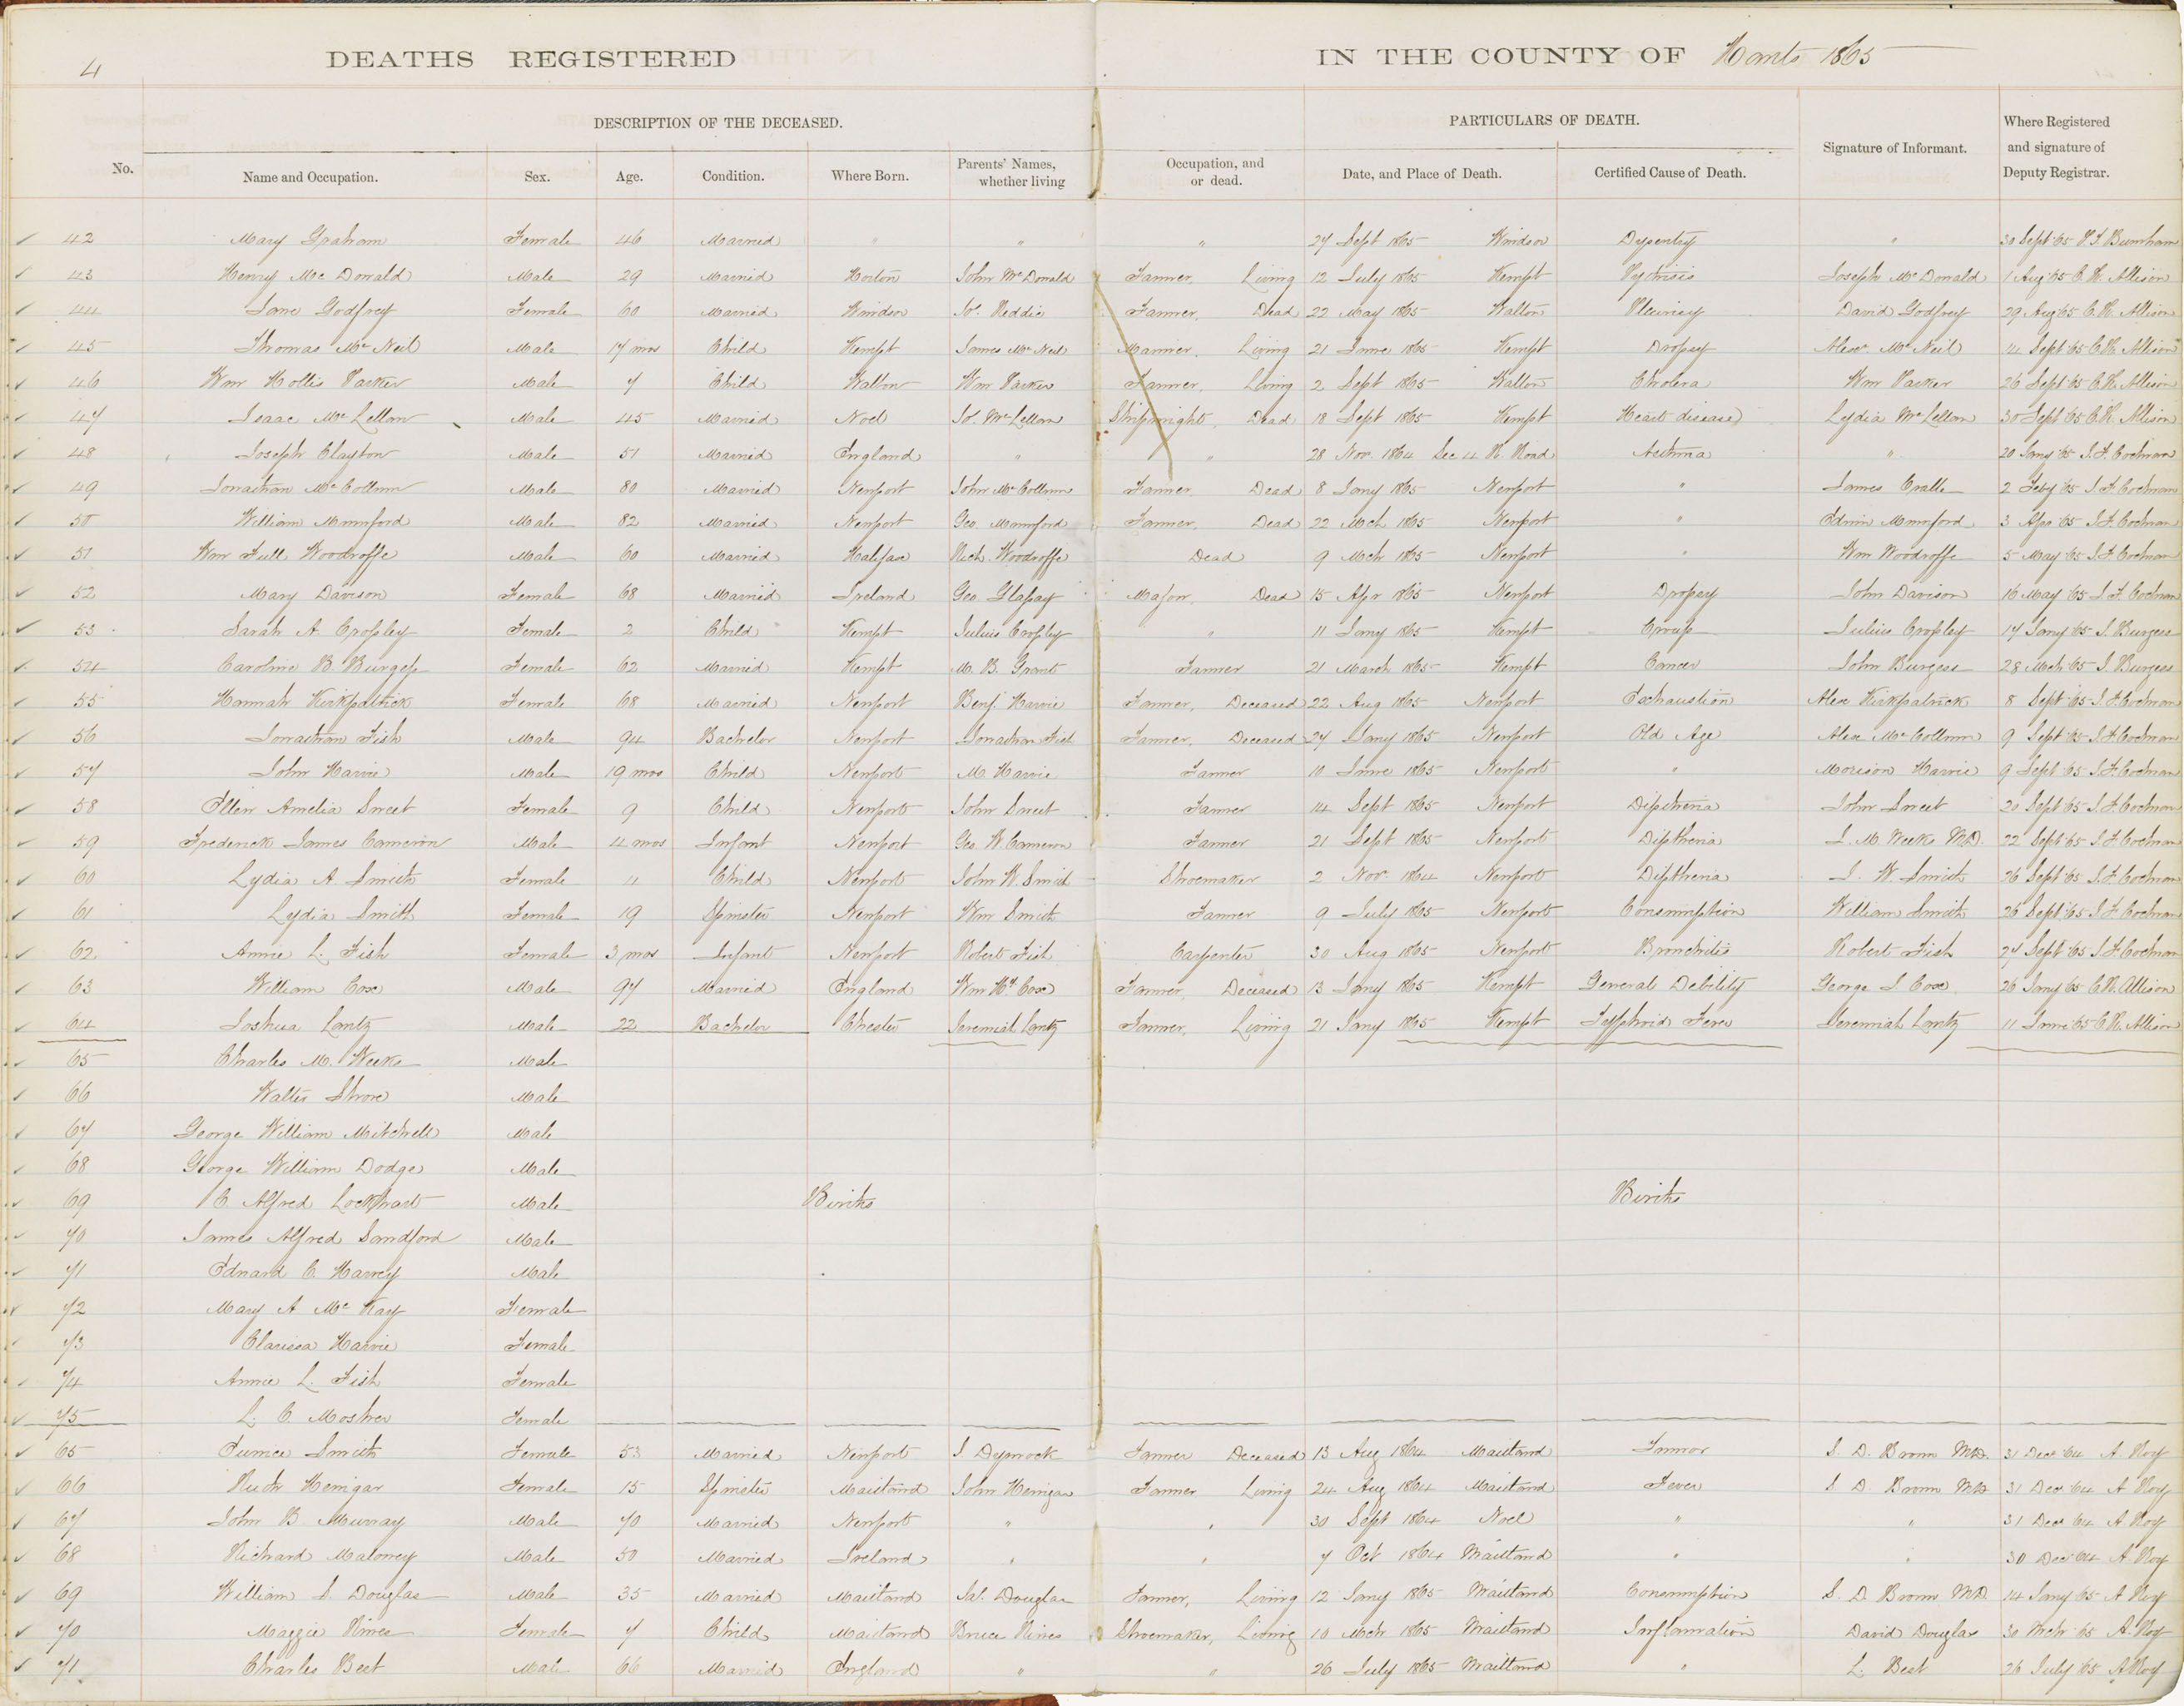 4
DEATHS REGISTERED IN THE COUNTY OF Hants 1865
DESCRIPTION OF THE DECEASED. PARTICULARS OF DEATH.
No. Name and Occupation. Sex. Age. Condition. Where Born. Parents' Names, whether living Occupation, and or dead. Date, and Place of Death. Certified Cause of Death. Signature of Informant. Where Registered and signature of Deputy Registrar.
42 Mary Graham Female 46 Married " " " 27 Sept 1865 Windsor Dysentry " 30 Sept '65 P.S. Burnham
43 Henry Mc Donald Male 29 Married Horton John McDonald Farmer, Living 12 July 1865 Kempt Pythisis Joseph McDonald 1 Aug '65 C.R. Allison
44 Jane Godfrey Female 60 Married Windsor Jo. Reddie Farmer, Dead 22 May 1865 Walton Pleurisy David Godfrey 29 Aug '65 C.R. Allison
45 Thomas Mc Neil Male 17 mos Child Kempt James McNeil Mariner, Living 21 June 1865 Kempt Dropsy Alexr. McNeil 4 Sept '65 C.R. Allison
46 Wm Hollis Parker Male 7 Child Walton Wm Parker Farmer, Living 2 Sept 1865 Walton Cholera Wm Parker 26 Sept '65 C.R. Allison
47 Isaac McLellan Male 45 Married Noel Jo. McLellan Shipwright, Dead 18 Sept 1865 Kempt Heart disease Lydia McLellan 30 Sept '65 C.R. Allison
48 Joseph Clayton Male 51 Married England " " 28 Nov. 1864 Sec 4 R. Road Asthma " 20 Jany '65 J.F. Cochran
49 Jonathan McCollum Male 80 Married Newport John McCollum Farmer, Dead 8 Jany 1865 Newport " James Cralle 2 Feby '65 J.F. Cochran
50 William Mumford Male 82 Married Newport Geo. Mumford Farmer, Dead 22 Mch 1865 Newport " Edwin Mumford 3 Apr '65 J.F. Cochran
51 Wm Tull Woodroffe Male 60 Married Halifax Rich. Woodroffe Dead 9 Mch 1865 Newport " Wm Woodroffe 5 May '65 J.F. Cochran
52 Mary Davison Female 68 Married Ireland Geo. Major, Dead 15 Apr 1865 Newport Dropsy John Davison 16 May '65 J.F. Cochran
53 Sarah A. Cropley Female 2 Child Kempt Julius Cropley " 11 Jany 1865 Kempt Croup Julius Cropley 17 Jany '65 J. Burgess
54 Caroline B. Burgess Female 62 Married Kempt M. B. Grant Farmer 21 March 1865 Kempt Cancer John Burgess 28 Mch '65 J. Burgess
55 Hannah Kirkpatrick Female 68 Married Newport Benj. Harvie Farmer, Deceased 22 Aug 1865 Newport Exhaustion Alex Kirkpatrick 8 Sept '65 J.F. Cochran
56 Jonathan Fish Male 94 Bachelor Newport Jonathan Fish Farmer, Deceased 27 Jany 1865 Newport Old Age Alex McCollum 9 Sept '65 J.F. Cochran
57 John Harvie Male 19 mos Child Newport M. Harvie Farmer 10 June 1865 Newport " Morison Harvie 9 Sept '65 J.F. Cochran
58 Ellen Amelia Sweet Female 9 Child Newport John Sweet Farmer 14 Sept 1865 Newport Diptheria John Sweet 20 Sept '65 J.F. Cochran
59 Frederick James Cameron Male 4 mos Infant Newport Geo W. Cameron Farmer 21 Sept 1865 Newport Diptheria J. M Weeks M.D. 22 Sept '65 J.F. Cochran
60 Lydia A. Smith Female 4 Child Newport John W. Smith Shoemaker 2 Nov. 1864 Newport Diptheria J. W Smith 26 Sept '65 J.F. Cochran
61 Lydia Smith Female 19 Spinster Newport Wm Smith Farmer 9 July 1865 Newport Consumption William Smith 26 Sept '65 J.F. Cochran
62 Annie L. Fish Female 3 mos Infant Newport Robert Fish Carpenter 30 Aug 1865 Newport Bronchitis Robert Fish 27 Sept '65 J.F. Cochran
63 William Cox Male 97 Married England Wm Hy. Cox Farmer, Deceased 13 Jany 1865 Kempt General Debility George J Cox 26 Jany '65 C.R. Allison
64 Joshua Lantz Male 22 Bachelor Chester Jeremiah Lantz Farmer, Living 21 Jany 1865 Kempt Typhoid Fever Jeremiah Lantz 11 June '65 C.R. Allison
65 Charles M. Weeks Male
66 Walter Shore Male
67 George William Mitchell Male
68 George William Dodge Male
69 C. Alfred Lockhart Male Births Births
70 James Alfred Sandford Male
71 Edward C. Harvey Male
72 Mary A McKay Female
73 Clarissa Harvie Female
74 Annie L. Fish Female
75 L. C. Mosher Female
65 Eunice Smith Female 53 Married Newport J. Dymock Farmer Deceased 13 Aug 1864 Maitland Tumor J. D. Brown MD. 31 Dec '64 A. Roy
66 Ruth Henigar Female 15 Spinster Maitland John Henigar Farmer Living 24 Aug 1864 Maitland Fever J D. Brown MD 31 Dec '64 A Roy
67 John B Murray Male 70 Married Newport " " 30 Sept 1864 Noel " " 31 Dec '64 A Roy
68 Richard Maloney Male 50 Married Ireland " " 7 Oct 1864 Maitland " " 30 Dec '64 A. Roy
69 William S. Douglas Male 35 Married Maitland Ja. Douglas Farmer, Living 12 Jany 1865 Maitland Consumption J. D. Brown MD 14 Jany '65 A Roy
70 Maggie Hines Female 7 Child Maitland Bruce Hines Shoemaker, Living 10 Mch 1865 Maitland Inflamation David Douglas 30 Mch '65 A. Roy
71 Charles Best Male 66 Married England " " 26 July 1865 Maitland " L. Best 26 July '65 A Roy